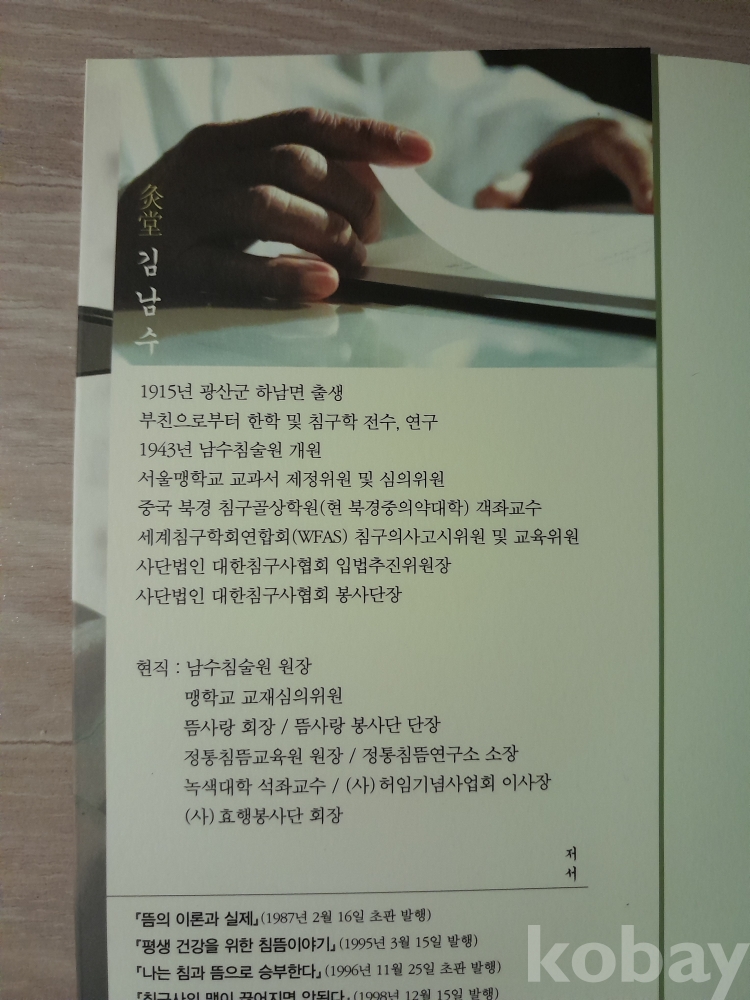 灸堂 김남수
1915년 광산군 하남면 출생
부친으로부터 한학 및 침구학 전수, 연구
1943년 남수침술원 개원
서울맹학교 교과서 제정위원 및 심의위원
중국 북경 침구골상학원(현 북경중의약대학) 객좌교수
세계침구학회연합회(WFAS) 침구의사고시위원 및 교육위원
사단법인 대한침구사협회 입법추진위원장
사단법인 대한침구사협회 봉사단장
현직 : 남수침술원 원장
맹학교 교재심의위원
뜸사랑 회장 / 뜸사랑 봉사단 단장
정통침뜸교육원 원장 / 정통침뜸연구소 소장
녹색대학 석좌교수 / (사)허임기념사업회 이사장
(사)효행봉사단 회장
저서
『뜸의 이론과 실제』(1987년 2월 16일 초판 발행)
『평생 건강을 위한 침뜸이야기』(1995년 3월 15일 발행)
『나는 침과 뜸으로 승부한다』(1996년 11월 25일 초판 발행)
『침구사의 맥이 끊어지면 안된다』(1998년 12월 15일 발행)
kobay